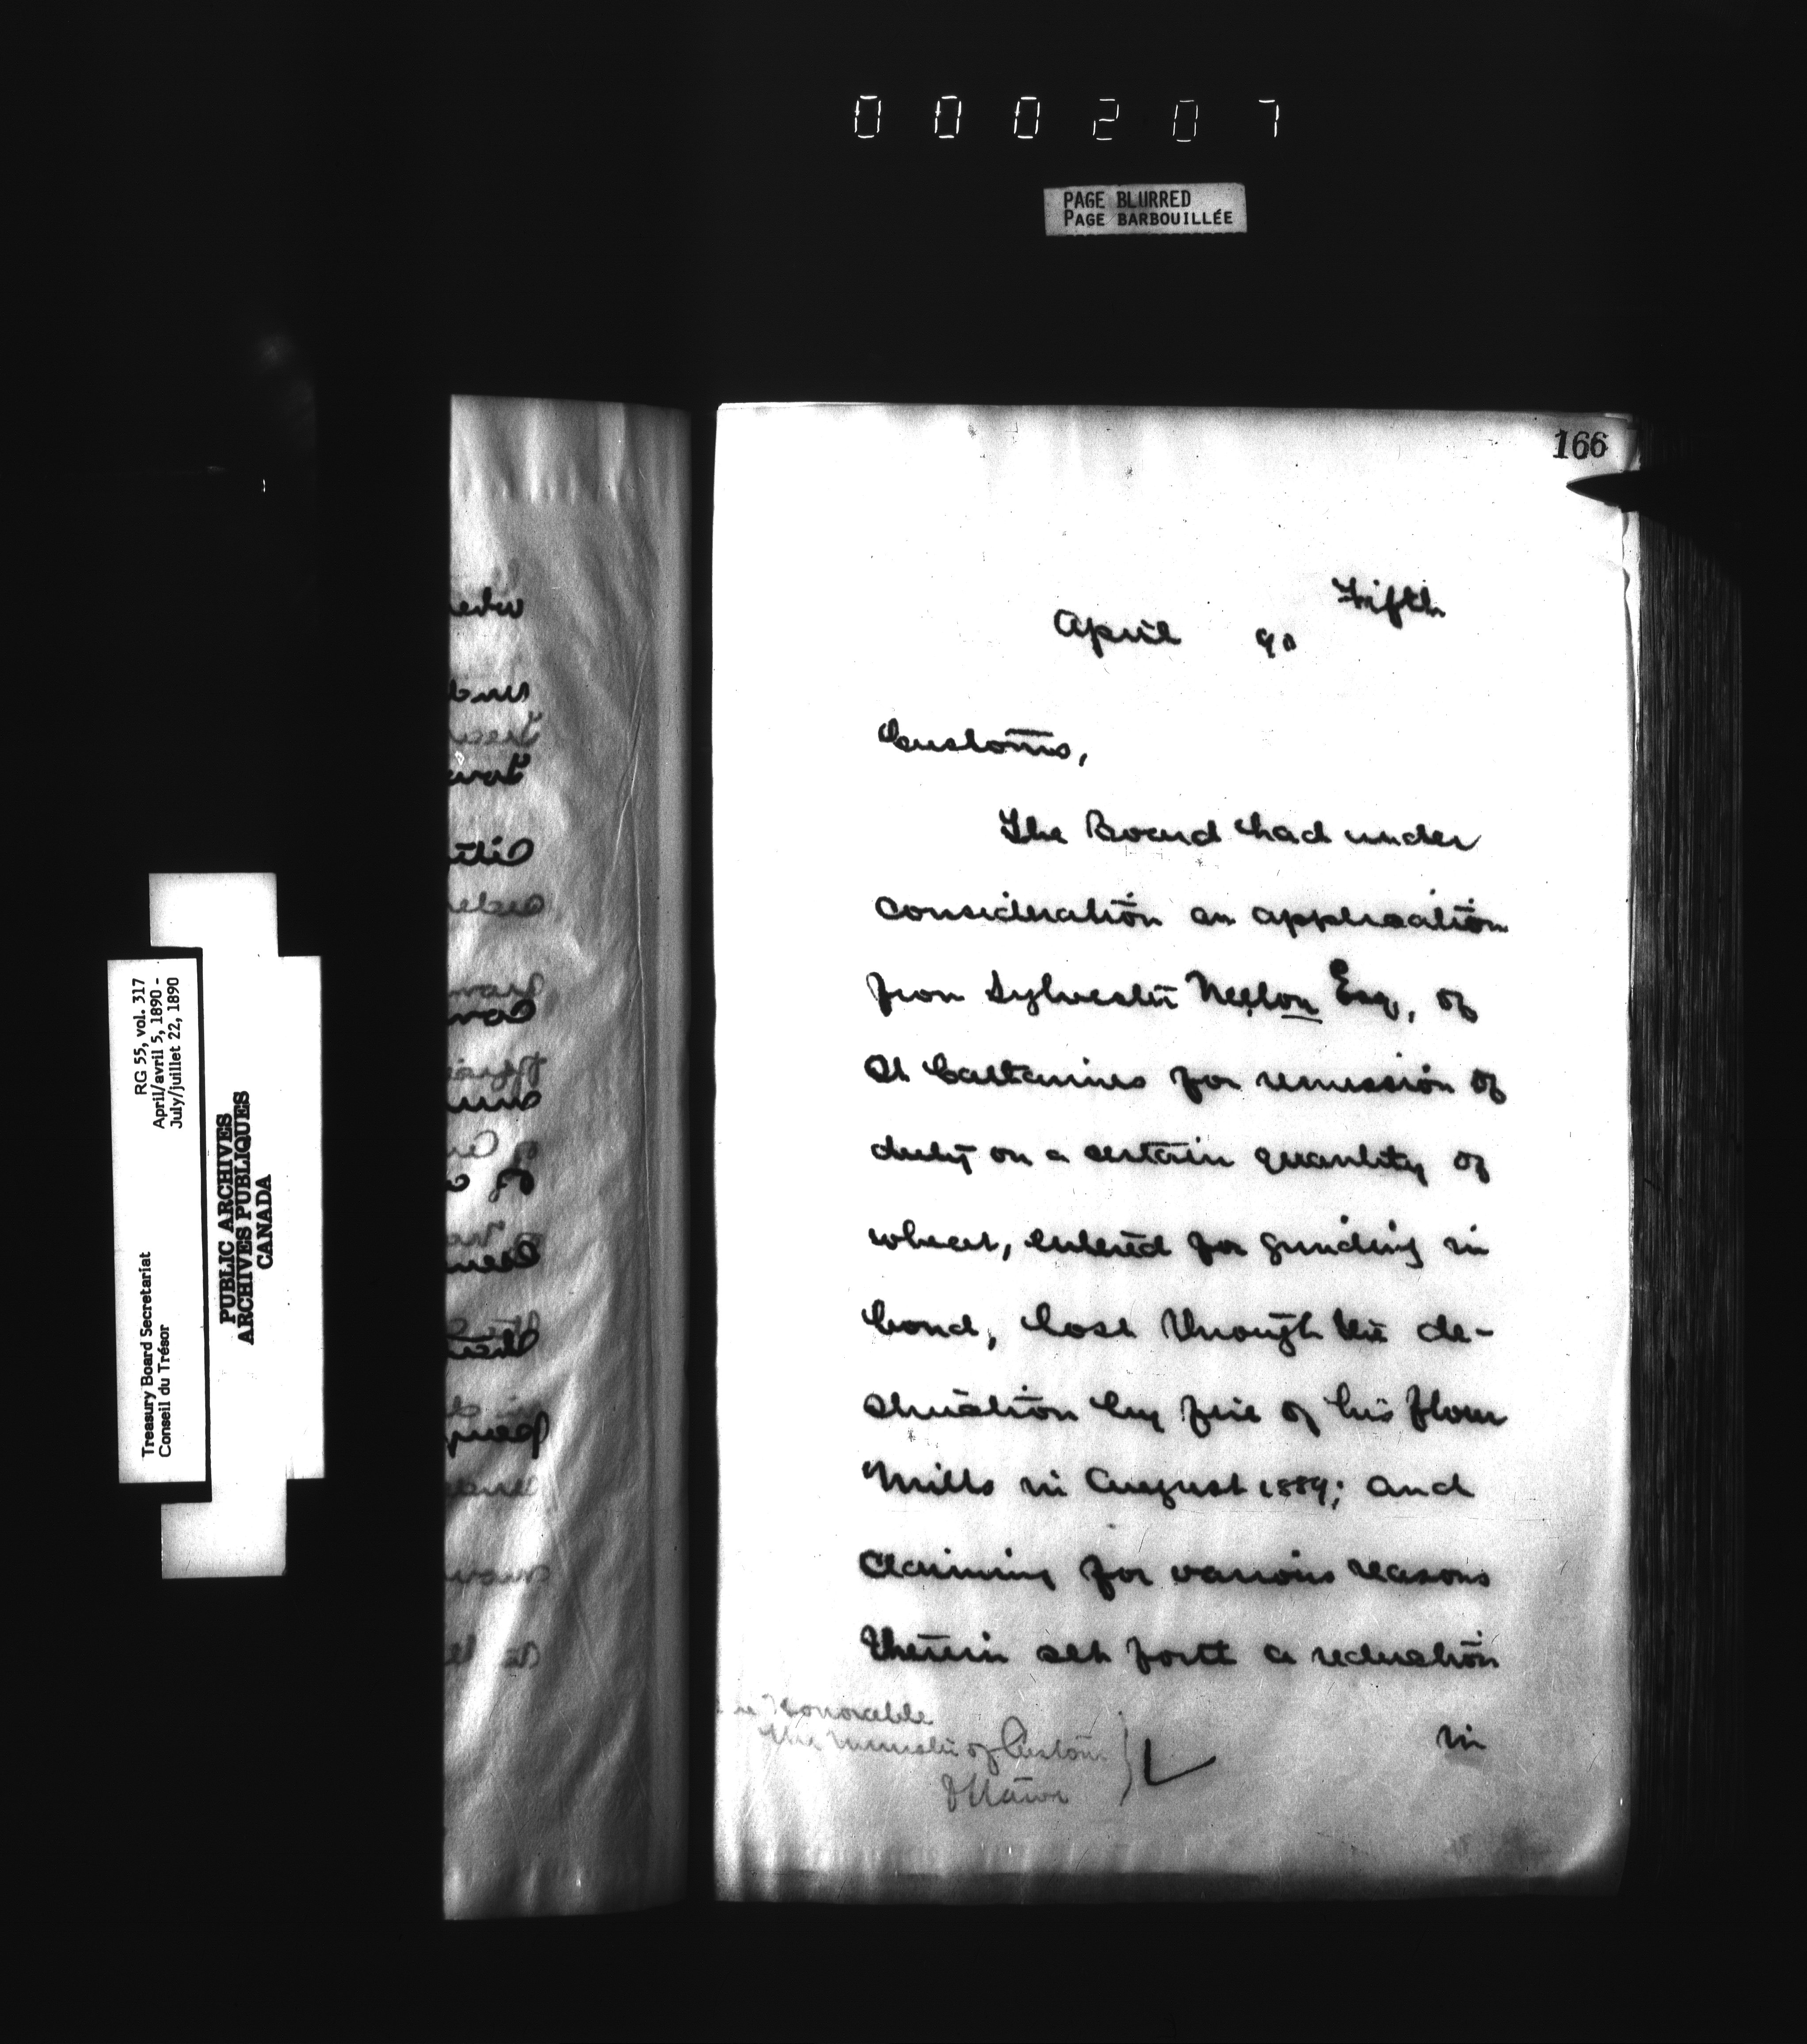 000207
PAGE BLURRED
PAGE BARBOUILLÉE
166
Fifth
April 90
Customs,
The Board had under
consideration an application
from Sylvester Neelon Esq, of
St Catharines for remission of
duty on a certain quantity of
wheat, entered for grinding in
bond, lost through the de-
struction by fire of his flour
Mills in August 1889; and
claiming for various reasons
therein set forth a reduction
in
Honorable
the Minister of Customs
Ottawa
RG 55, vol. 317
April/avril 5, 1890 -
July/juillet 22, 1890
Treasury Board Secretariat
Conseil du Trésor
PUBLIC ARCHIVES
ARCHIVES PUBLIQUES
CANADA